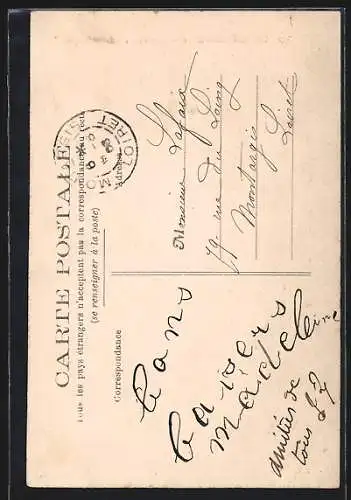 CARTE POSTALE
Tous les pays étrangers n'acceptent pas la correspondance au recto
(se renseigner à la poste)
Correspondance
Adresse
LOIRET
Bons
baisers
Madeleine
amitiés de
tous
Monsieur
79 rue du Loing
Montargis
Loiret